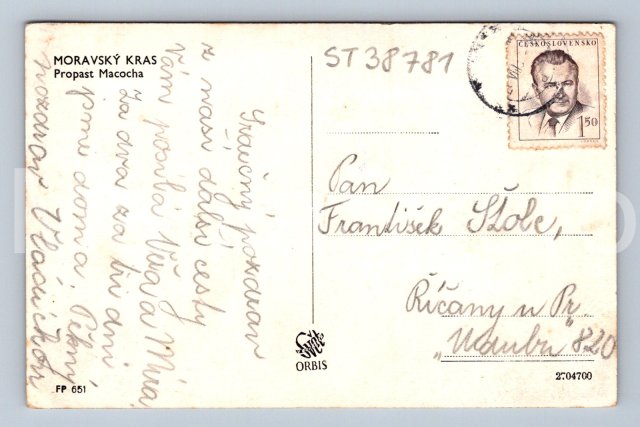 MORAVSKÝ KRAS
Propast Macocha
ST 38781
ČESKOSLOVENSKO
1.50
Srdečný pozdrav
z naší další cesty
Vám posílá Věra a Míra
Za dva za tři dni
jsme doma. Pěkný
pozdrav
Pan
František Stolc,
Říčany u Pr.
820
ORBIS
FP 651
2704700